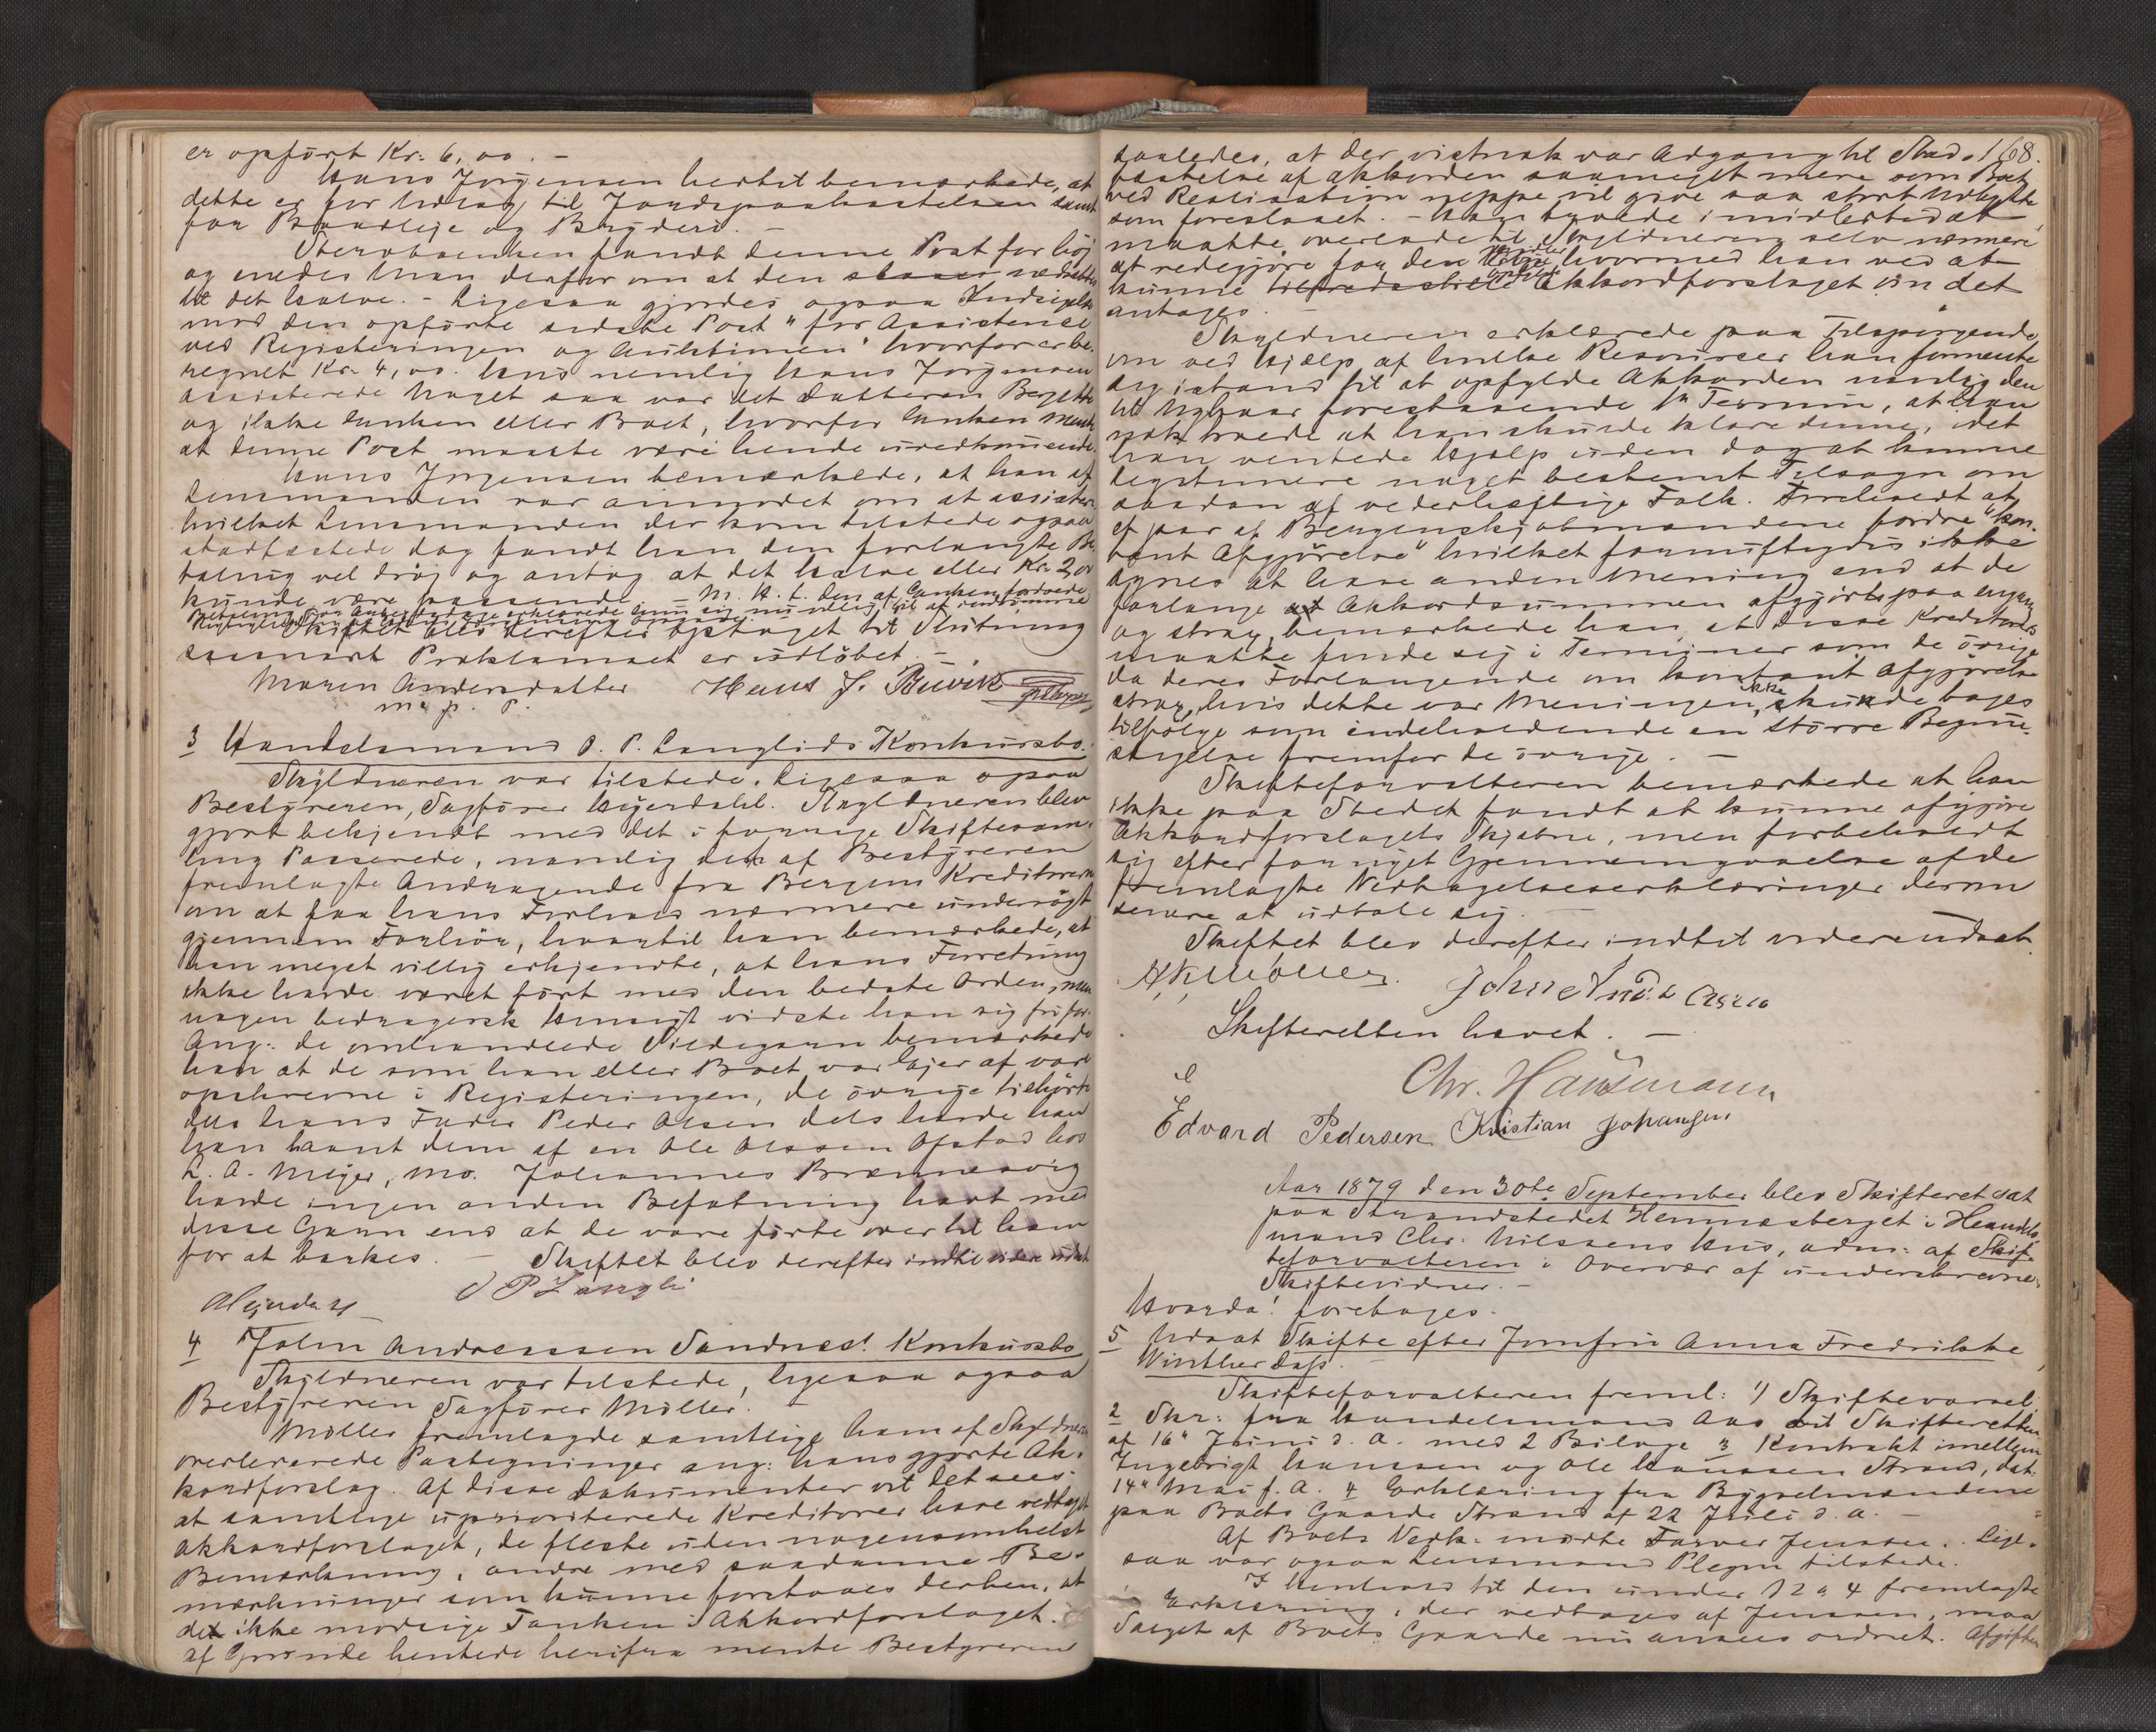 er opført Kr. 6,00. –
Hans Jørgensen hertil bemærkede, at
dette er for Udlæg til Jordspaakastelsen samt
for Baadleje og Bryderi. –
Sterboenken fandt denne Post for høj
og enedes man derfor om at den nedsættes
til det halve. – Ligesaa gjordes ogsaa Indsigelse
mod den opførte sidste Post "for Assistence
ved Registeringen og Auktionen" hvorfor er be-
regnet Kr. 4,00. Hvis nemlig Hans Jørgensen
assisterede Noget saa var det Datteren Bergitte
og ikke Enken eller Boet, hvorfor Enken mente
at denne Post maatte være hende uvedkommende.
Hans Jørgensen bemærkede, at han af
Lensmanden var anmodet om at assistere
hvilket Lensmanden der kom tilstede ogsaa
stadfæstede dog fandt han den forlangte Be-
taling vel drøj og antog at det halve eller Kr. 2,00
kunde være passende. – M. H. t. den af Enken fordrede
Skiftet blev derefter optaget til Slutning
saasnart Proklamaet er udløbet. –
Maren Andersdatter Hans J. Buvik
m. p. P.
3 Handelsmand O. P. Langlids Konkursbo.
Skyldneren var tilstede. Ligesaa ogsaa
Bestyreren, Sagfører Hejerdahl. Skyldneren blev
gjort bekjendt med det i forrige Skiftesam-
ling Passerede, namlig det af Bestyreren
fremlagte Andragende fra Bergens Kreditorer
om at faa hans Forhold nærmere undersøgt
gjennem Forhør, hvortil han bemærkede, at
han meget villig erkjendte, at hans Forretning
ikke havde været ført med den bedste Orden, men
nogen bedragersk Hensigt vidste han sig fri for.
Ang. de omhandlede Sildegarn bemærkede
han at de som han eller Boet var Ejer af vare
opskrevne i Registeringen, de øvrige tilhørte
dels hans Fader Peder Olsen dels havde han
han laant dem af en Ole Olssen Opstad hos
L. A. Mejer, Mo. Johannes Brennesvig
havde ingen anden Befatning havt med
disse Garn end at de vare førte over til ham
for at barkes. – Skiftet blev derefter indtil videre udsat
O P Langli
Hejerdahl
4 John Andreassen Sandnes' Konkursbo
Skyldneren var tilstede, ligesaa ogsaa
Bestyreren Sagfører Møller. –
Møller fremlagde samtlige ham af Skyldneren
overleverede Paategninger ang: hans gjorte Ak-
kordforslag. Af disse Dokumenter vil det sees
at samtlige uprioriterede Kreditorer have vedtaget
Akkordforslaget, de fleste uden nogensomhelst
Bemærkning, andre med saadanne Be-
mærkninger som kunne forstaaes derhen, at
det ikke modsige Tanken i Akkordforslaget.
af Grunde hentede herifra mente Bestyreren
saaledes, at der vistnok var Adgang til Stad- 168.
fæstelse af Akkorden saameget mere som Boet
ved Realisation neppe vil give saa stort Udbytte
som foreslaaet. – Han troede imidlertid at
maatte overlade til Skyldneren selv nærmere
at redegjøre for den Midler hvormed han ved at
kunne opfylde Akkordforslaget om det
antages. –
Skyldneren erklærede paa Tilspørgende
om ved Hjælp af hvilke Resourcer han formente
sig istand til at opfylde Akkorden nemlig den
til Nytaar forestaaende 1ste Termin, at han
nok troede at han skulde klare denne, idet
han ventede Hjælp uden dog at kunne
legitimere noget bestemt Tilsagn om
saadan af vederhæftige Folk. Foreholdt at
et par af Bergenskjøbmændene fordre "kon-
tant Afgjørelse" hvilket fornuftigvis ikke
synes at have anden Mening end at de
forlange at Akkordsummen afgjørtes paa engang
og strax, bemærkede han, at disse Kreditorer
maatte finde sig i Terminer som de øvrige
da deres Forlangende om kontant Afgjørelse
strax, hvis dette var Meningen, ikke kunde tages
tilfølge som indeholdende en større Begun-
stigelse fremfor de øvrige. –
Skifteforvalteren bemærkede at han
ikke paa Stedet fandt at kunne afgjøre
Akkordforslagets Skjæbne, men forbeholdt
sig efter fornyet Gjennemgaaelse af de
fremlagte Vedtagelseserklæringer derom
senere at udtale sig. –
Skiftet blev derefter indtil videre udsat.
HKMøller. John Andreassen
Skifteretten hævet. –
Chr. Hausmann
Edvard Pedersen Kristian Johansen
Aar 1879 den 30te September blev Skifteret sat
paa Strandstedet Hemnesberget i Handels-
mand Chr. Nilssens Hus, adm: af Skif-
teforvalteren i Overvær af underskrevne
Skiftevidner. –
Hvorda! foretages.
5 Udsat Skifte efter Jomfru Anna Fredrikke
Winther Dass. –
Skifteforvalteren freml: 1) Skiftevarsel
2 Skr: fra Handelsmand Aas til Skifteretten
af 16de Juni d. A. med 2 Bilage 3 Kontrakt imellem
Ingebrigt Hanssen og Ole Hanssen Strand, dat.
14de Mai f. A. 4 Erklæring fra Bygselmændene
paa Boets Gaarde Strand af 22 Juli d. A. –
Af Boets Vedk. mødte Farver Jenssen. Lige-
saa var ogsaa Lensmand Plegm tilstede.
I Henhold til den under No 4 fremlagte
Erklæring, der vedtages af Jenssen, maa
Salget af Boets Gaarde nu ansees ordnet. Afgiften